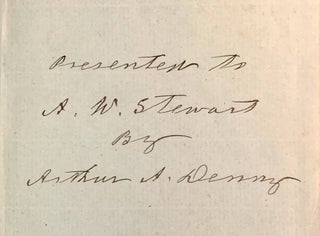 Presented to
A. W. Stewart
By
Arthur A. Denny